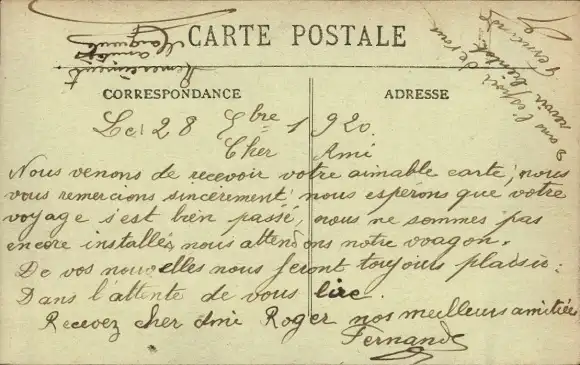 CARTE POSTALE
CORRESPONDANCE
ADRESSE
Le 28 Xbre 1920
Cher Ami
Nous venons de recevoir votre aimable carte, nous
vous remercions sincèrement, nous espérons que votre
voyage s'est bien passé, nous ne sommes pas
encore installés nous attendons notre wagon.
De vos nouvelles nous feront toujours plaisir.
Dans l'attente de vous lire.
Recevez cher Ami Roger nos meilleurs amitiées
Fernand
Remerciement
dans l'espoir de vous
revoir bientôt
Fernand